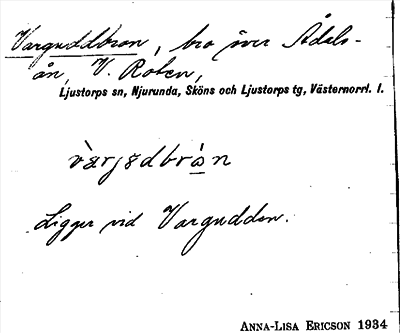 Varguddbron, bro över Ådals-
ån, V. Roten,
Ljustorps sn, Njurunda, Sköns och Ljustorps tg, Västernorrl. l.
Ligger vid Vargudden.
ANNA-LISA ERICSON 1934